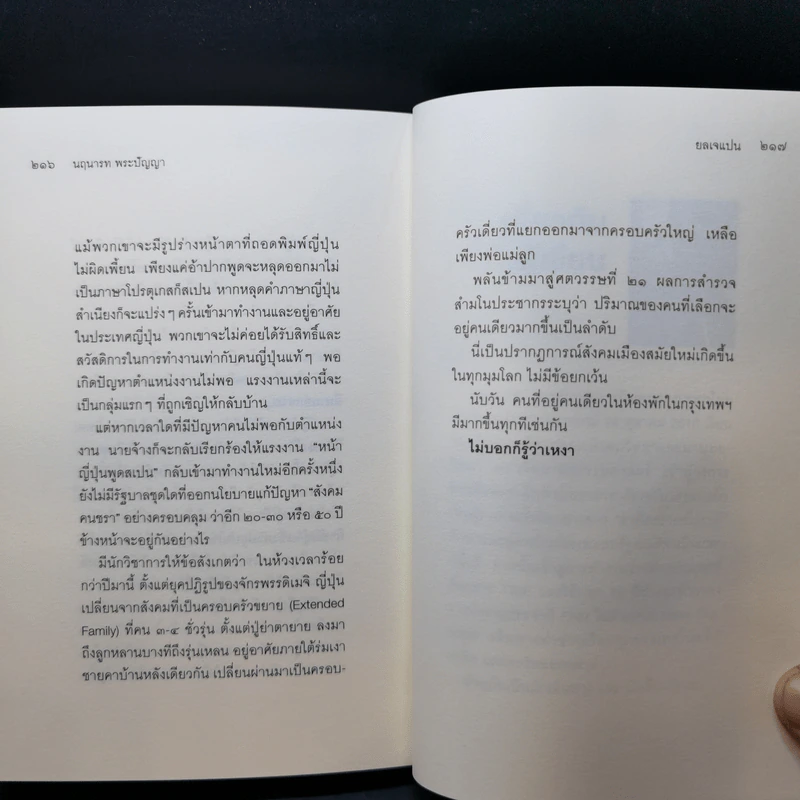 ๒๑๖ นฤนารท พระปัญญา
แม้พวกเขาจะมีรูปร่างหน้าตาที่ถอดพิมพ์ญี่ปุ่น
ไม่ผิดเพี้ยน เพียงแค่อ้าปากพูดจะหลุดออกมาไม่
เป็นภาษาโปรตุเกสก็สเปน หากหลุดคำภาษาญี่ปุ่น
สำเนียงก็จะแปร่งๆ ครั้นเข้ามาทำงานและอยู่อาศัย
ในประเทศญี่ปุ่น พวกเขาจะไม่ค่อยได้รับสิทธิ์และ
สวัสดิการในการทำงานเท่ากับคนญี่ปุ่นแท้ๆ พอ
เกิดปัญหาตำแหน่งงานไม่พอ แรงงานเหล่านี้จะ
เป็นกลุ่มแรกๆ ที่ถูกเชิญให้กลับบ้าน
แต่หากเวลาใดที่มีปัญหาคนไม่พอกับตำแหน่ง
งาน นายจ้างก็จะกลับเรียกร้องให้แรงงาน “หน้า
ญี่ปุ่นพูดสเปน” กลับเข้ามาทำงานใหม่อีกครั้งหนึ่ง
ยังไม่มีรัฐบาลชุดใดที่ออกนโยบายแก้ปัญหา “สังคม
คนชรา” อย่างครอบคลุม ว่าอีก ๒๐-๓๐ หรือ ๕๐ ปี
ข้างหน้าจะอยู่กันอย่างไร
มีนักวิชาการให้ข้อสังเกตว่า ในห้วงเวลาร้อย
กว่าปีมานี้ ตั้งแต่ยุคปฏิรูปของจักรพรรดิเมจิ ญี่ปุ่น
เปลี่ยนจากสังคมที่เป็นครอบครัวขยาย (Extended
Family) ที่คน ๓-๔ ชั่วรุ่น ตั้งแต่ปู่ย่าตายาย ลงมา
ถึงลูกหลานบางทีถึงรุ่นเหลน อยู่อาศัยภายใต้ร่มเงา
ชายคาบ้านหลังเดียวกัน เปลี่ยนผ่านมาเป็นครอบ-
ยลเจแปน ๒๑๗
ครัวเดี่ยวที่แยกออกมาจากครอบครัวใหญ่ เหลือ
เพียงพ่อแม่ลูก
พลันข้ามมาสู่ศตวรรษที่ ๒๑ ผลการสำรวจ
สำมโนประชากรระบุว่า ปริมาณของคนที่เลือกจะ
อยู่คนเดียวมากขึ้นเป็นลำดับ
นี่เป็นปรากฏการณ์สังคมเมืองสมัยใหม่เกิดขึ้น
ในทุกมุมโลก ไม่มีข้อยกเว้น
นับวัน คนที่อยู่คนเดียวในห้องพักในกรุงเทพฯ
มีมากขึ้นทุกทีเช่นกัน
ไม่บอกก็รู้ว่าเหงา